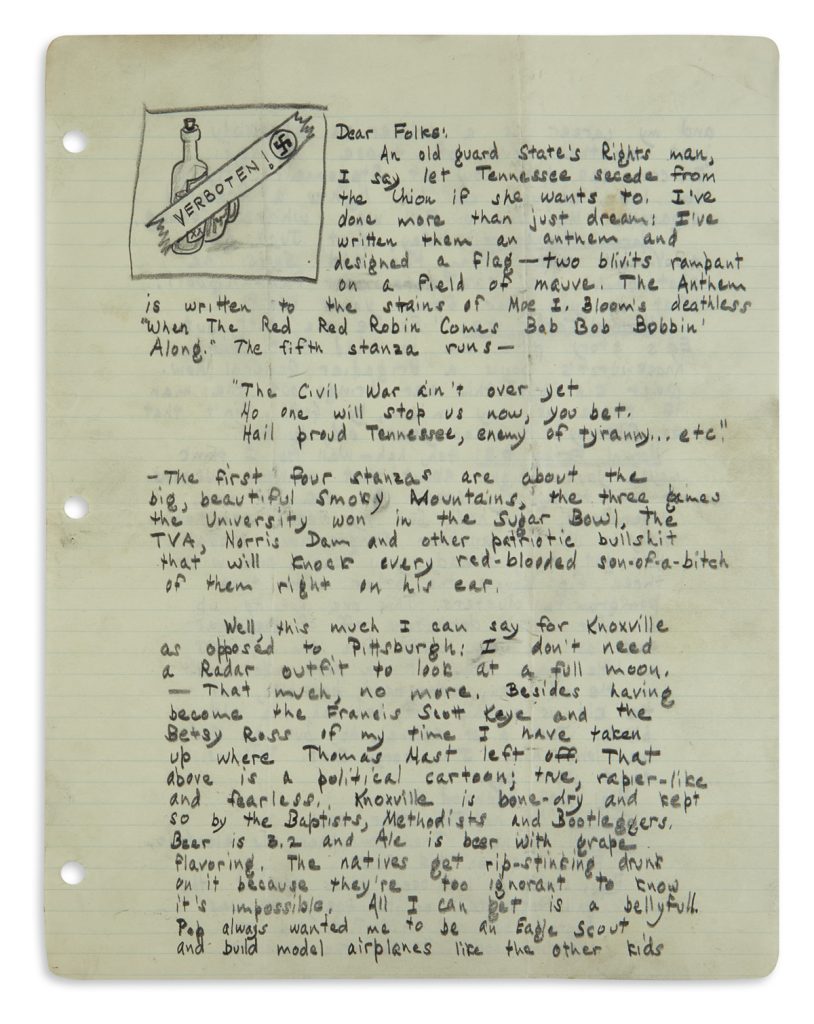 VERBOTEN!
XX
Dear Folks:
An old guard State's Rights man,
I say let Tennessee secede from
the Union if she wants to. I've
done more than just dream: I've
written them an anthem and
designed a flag — two blivits rampant
on a field of mauve. The Anthem
is written to the stains of Moe I. Bloom's deathless
"When The Red Red Robin Comes Bob Bob Bobbin'
Along." The fifth stanza runs —
"The Civil War ain't over yet
No one will stop us now, you bet.
Hail proud Tennessee, enemy of tyranny... etc."
— The first four stanzas are about the
big, beautiful Smoky Mountains, the three games
the University won in the Sugar Bowl, The
TVA, Norris Dam and other patriotic bullshit
that will knock every red-blooded son-of-a-bitch
of them right on his ear.
Well, this much I can say for Knoxville
as opposed to Pittsburgh: I don't need
a Radar outfit to look at a full moon.
— That much, no more. Besides having
become the Francis Scott Keye and the
Betsy Ross of my time I have taken
up where Thomas Nast left off. That
above is a political cartoon; true, rapier-like
and fearless. Knoxville is bone-dry and kept
so by the Baptists, Methodists and Bootleggers.
Beer is 3.2 and Ale is beer with grape
flavoring. The natives get rip-stinking drunk
on it because they're too ignorant to know
it's impossible. All I can get is a bellyfull.
Pop always wanted me to be an Eagle Scout
and build model airplanes like the other kids